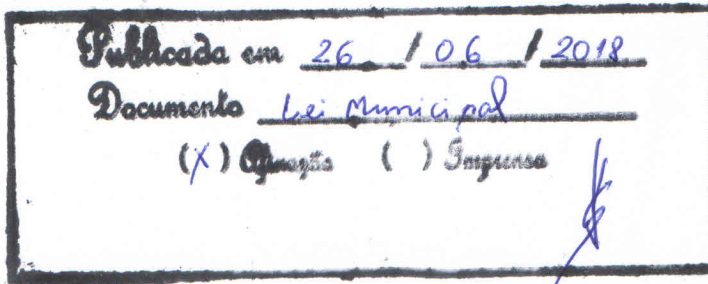 Publicada em 26 / 06 / 2018
Documento Lei Municipal
(X) Afixação ( ) Imprensa